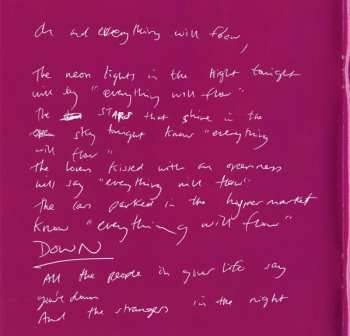 Oh and everything will flow,
The neon lights in the night tonight
will say "everything will flow"
The STARS that shine in the
sky tonight know "everything
will flow"
The lovers kissed with an openness
will say "everything will flow"
The cars parked in the hypermarket
know "everything will flow"
DOWN
All the people in your life say
you're down
And the strangers in the night